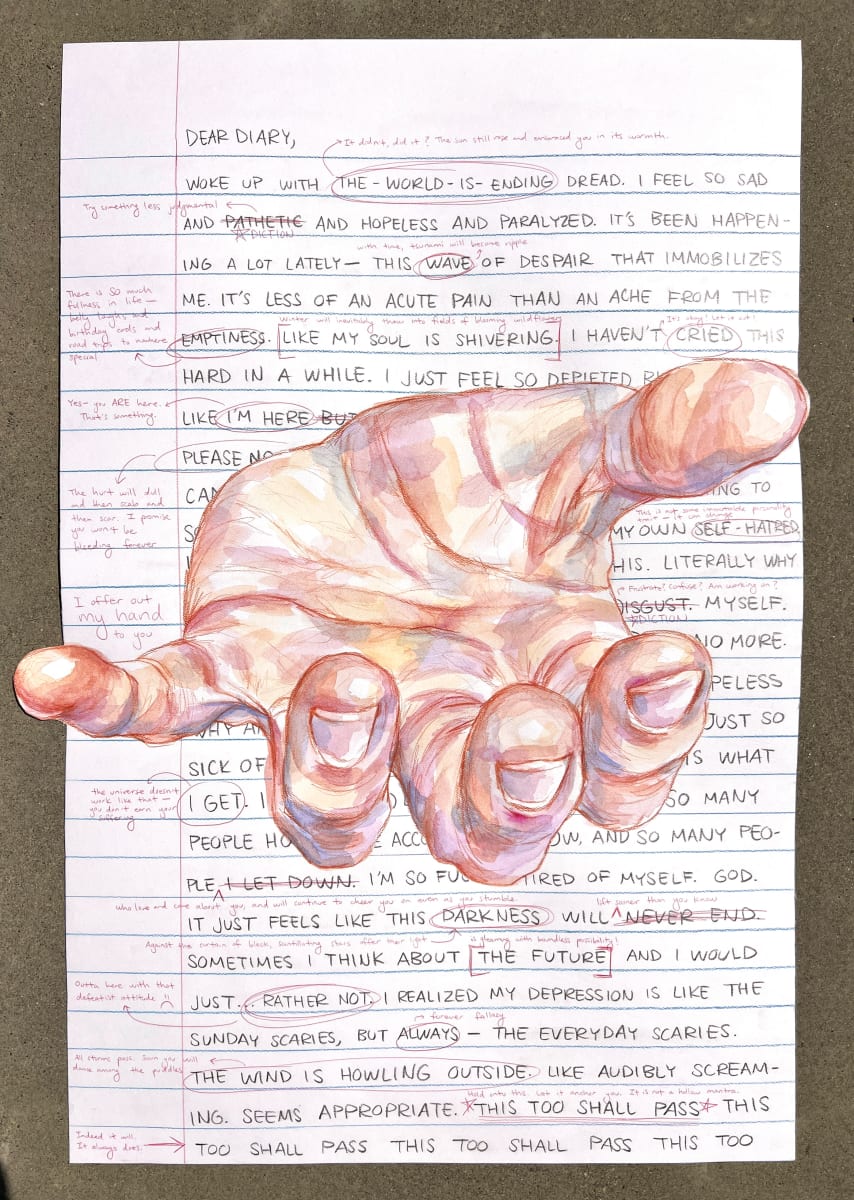 DEAR DIARY,
It didn't, did it? The sun still rose and embraced you in its warmth.
WOKE UP WITH THE-WORLD-IS-ENDING DREAD. I FEEL SO SAD
Try something less judgmental
AND PATHETIC AND HOPELESS AND PARALYZED. IT'S BEEN HAPPEN-
DICTION
with time, tsunami will become ripple
ING A LOT LATELY— THIS WAVE OF DESPAIR THAT IMMOBILIZES
ME. IT'S LESS OF AN ACUTE PAIN THAN AN ACHE FROM THE
There is SO much
fullness in life —
belly laughs and
birthday cards and
road trips to nowhere
special
Winter will inevitably thaw into fields of blooming wildflowers
It's okay! Let it out!
EMPTINESS. [LIKE MY SOUL IS SHIVERING.] I HAVEN'T CRIED THIS
HARD IN A WHILE. I JUST FEEL SO DEPLETED
Yes— you ARE here.
That's something.
LIKE I'M HERE BUT
PLEASE
The hurt will dull
and then scab and
then scar. I promise
you won't be
bleeding forever
TO
This is not some immutable personality
trait — it can change
MY OWN SELF-HATRED
HIS. LITERALLY WHY
Frustrate? Confuse? Am working on?
DISGUST. MYSELF.
DICTION
I offer out
my hand
to you
NO MORE.
PELESS
WHY JUST SO
SICK OF IS WHAT
the universe doesn't
work like that —
you don't earn your
suffering
I GET. SO MANY
PEOPLE AND SO MANY PEO-
PLE I LET DOWN. I'M SO TIRED OF MYSELF. GOD.
who love and care about you, and will continue to cheer you on even as you stumble.
lift sooner than you know
IT JUST FEELS LIKE THIS DARKNESS WILL NEVER END.
Against the curtain of black, scintillating stars offer their light
is gleaming with boundless possibility!
SOMETIMES I THINK ABOUT [THE FUTURE] AND I WOULD
Outta here with that
defeatist attitude
JUST... RATHER NOT. I REALIZED MY DEPRESSION IS LIKE THE
forever fallacy
SUNDAY SCARIES, BUT ALWAYS — THE EVERYDAY SCARIES.
All storms pass. Soon you will
dance among the puddles
THE WIND IS HOWLING OUTSIDE. LIKE AUDIBLY SCREAM-
Hold onto this. Let it anchor you. It is not a hollow mantra.
ING. SEEMS APPROPRIATE. THIS TOO SHALL PASS THIS
Indeed it will.
It always does.
TOO SHALL PASS THIS TOO SHALL PASS THIS TOO